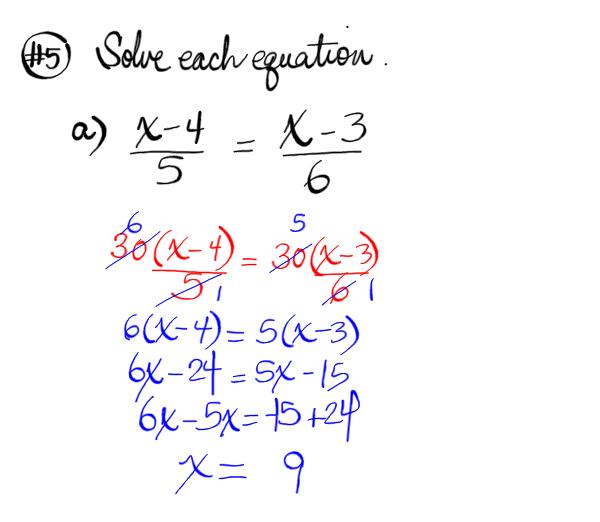 #5 Solve each equation.
a) x-4/5 = x-3/6
6 5
30(x-4)/5 1 = 30(x-3)/6 1
6(x-4) = 5(x-3)
6x-24 = 5x-15
6x-5x = -15+24
x = 9